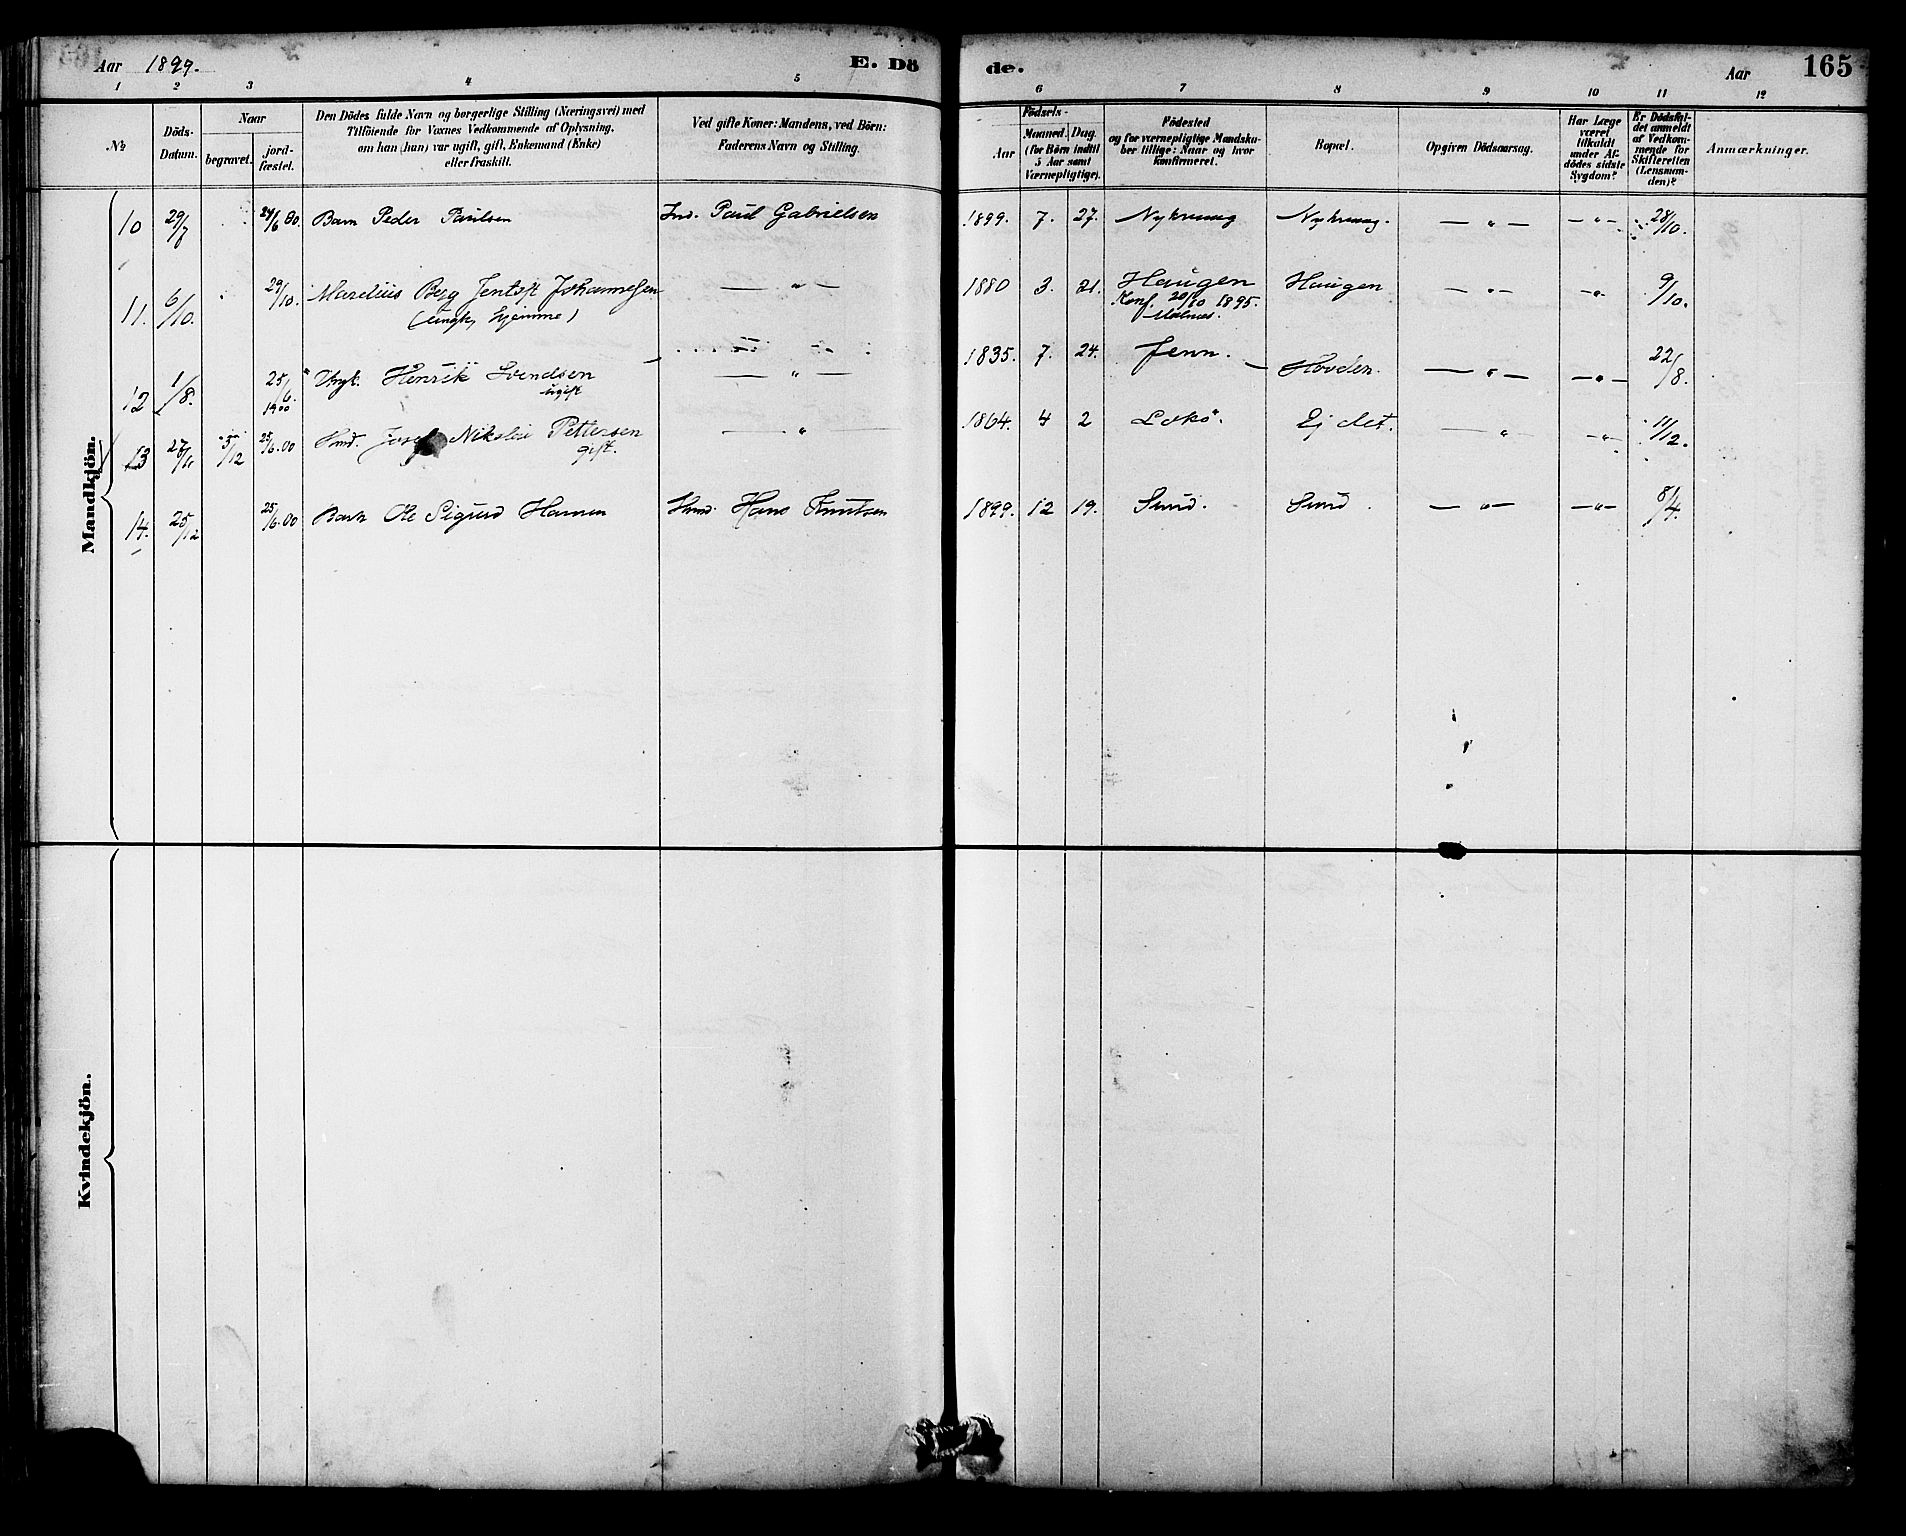 Aar 1899.
E. Dö
de.
Aar
165
1 2 3 4 5 6 7 8 9 10 11 12
№
Döds-Datum.
Naar
begravet.
jord-fæstet.
Den Dödes fulde Navn og borgerlige Stilling (Næringsvei) med
Tilföiende for Voxnes Vedkommende af Oplysning,
om han (hun) var ugift, gift, Enkemand (Enke)
eller fraskilt.
Ved gifte Koner: Mandens, ved Börn:
Faderens Navn og Stilling.
Födsels-
Aar
Maaned. Dag.
(for Börn indtil
5 Aar samt
Værnepligtige).
Födested
og for værnepligtige Mandsku-
ber tillige: Naar og hvor
konfirmeret.
Bopæl.
Opgiven Dödsaarsag.
Har Læge
været
tilkaldt
under Af-
dödes sidste
Sygdom?
Er Dödsfal-
det anmeldt
af Vedkom-
mende for
Skifteretten
(Lensman-
den)?
Anmærkninger.
Mandkjön.
10 29/7 24/6 00. Barn Peder Paulsen Ind. Paul Gabrielsen 1899. 7. 27. Nykvaag Nykvaag. — " — — " — 28/10.
11. 6/10. 29/10. Marelius Berg Jentoft Johannesen — " — 1880 3. 21. Haugen Haugen — " — — " — 9/10.
(Ungk, hjemme) Konf. 20/10 1895.
Malnes.
12 1/8. 25/6. 1900 Ungk. Henrik Svendsen — " — 1835. 7. 24. Jenn. Hovden. — " — — " — 22/8.
ugift
13 27/11 5/12 25/6.00 Hmd. Josef Nikolai Pettersen — " — 1864. 4 2 Ej det. — " — — " — 11/12.
gift.
14. 25/12 25/6.00 Barn Ole Sigurd Hansen Hmd. Hans Knutsen 1899. 12 19. Sund. Sund. — " — — " — 8/4.
Kvindekjön.